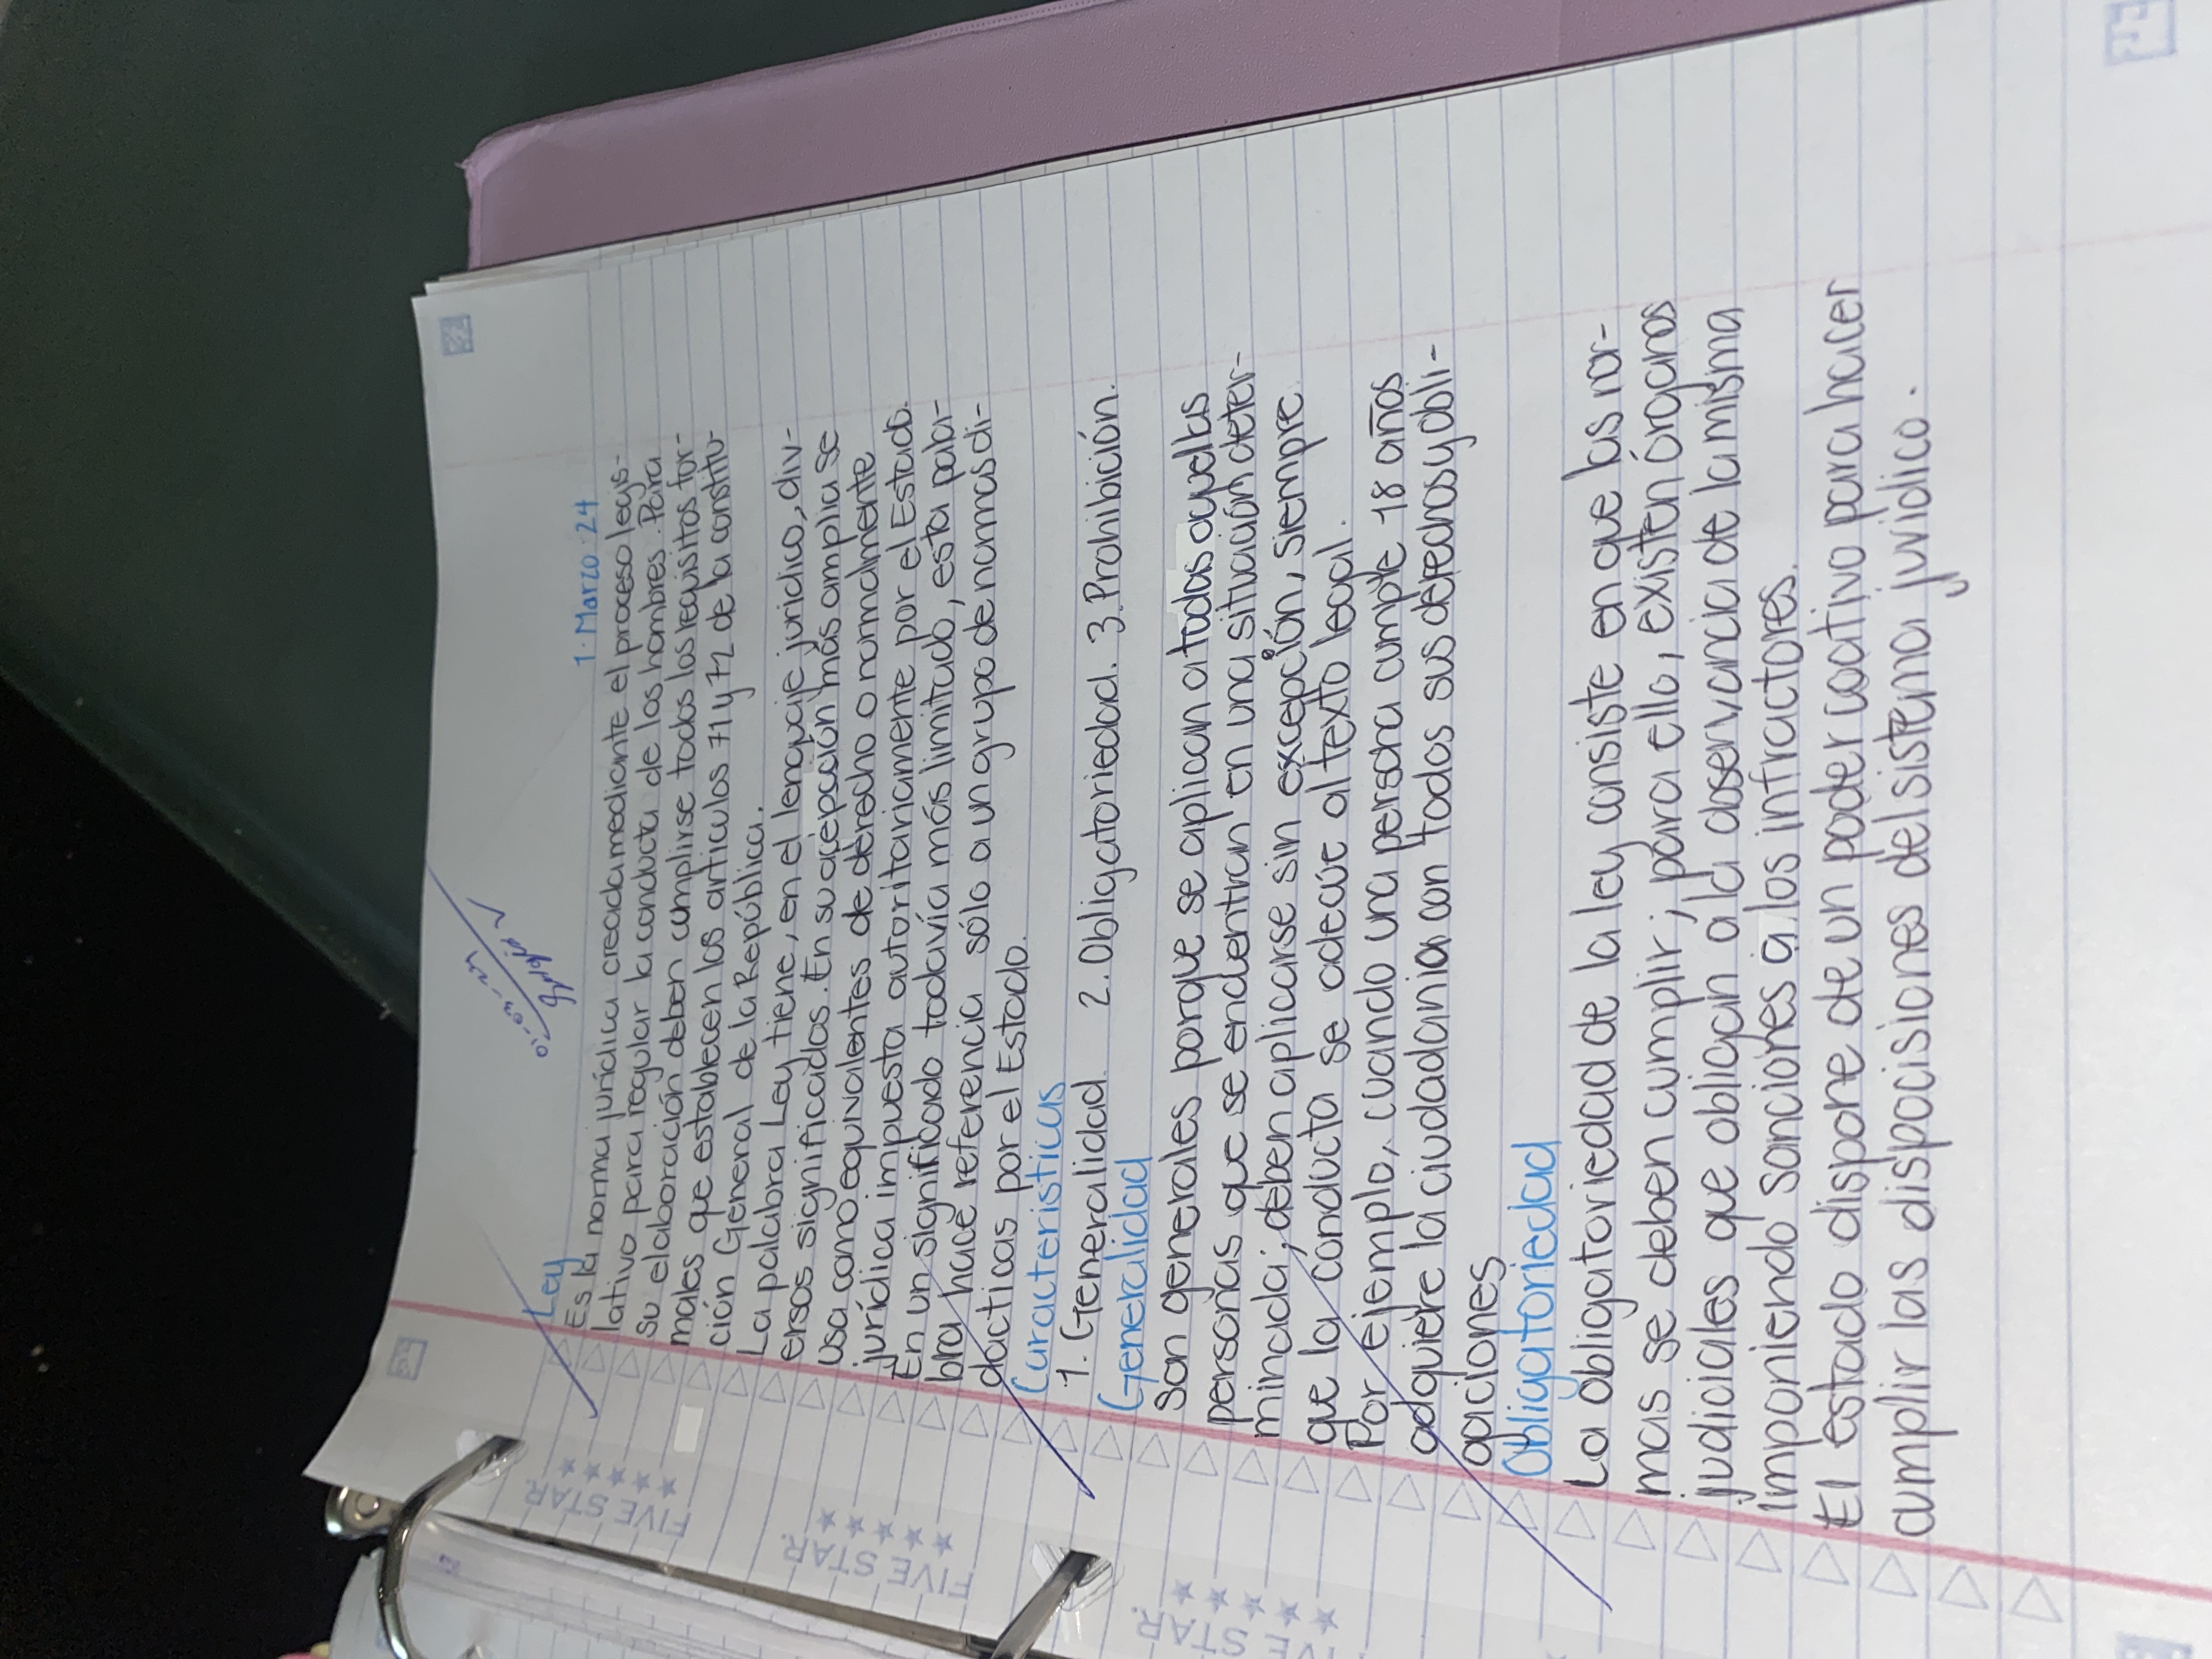 01-03-24
1·Marzo·24
Ley
Es la norma jurídica creada mediante el proceso legis-
lativo para regular la conducta de los hombres. Para
su elaboración deben cumplirse todos los requisitos for-
males que establecen los articulos 71 y 72 de la constitu-
ción General de la República.
La palabra Ley tiene, en el lenguaje juridico, div-
ersos significados. En su acepción más amplia se
usa como equivalentes de derecho o normalmente
jurídica impuesta autoritariamente por el Estado.
En un significado todavía más limitado, esta pala-
bra hace referencia sólo a un grupo de normas di-
dacticas por el Estado.
Caracteristicas
1. Generalidad. 2. Obligatoriedad. 3. Prohibición.
Generalidad
Son generales porque se aplican a todas aquellas
personas que se encuentran en una situación deter-
minada; deben aplicarse sin excepción, siempre
que la conducta se adecúe al texto legal.
Por ejemplo, cuando una persona cumple 18 años
adquiere la ciudadania con todos sus derechos y obli-
gaciones
Obligatoriedad
La obligatoriedad de la ley consiste en que las nor-
mas se deben cumplir; para ello, existen órganos
judiciales que obligan a la observancia de la misma
imponiendo sanciones a los infractores.
El estado dispone de un poder coativo para hacer
cumplir las disposiciones del sistema juridico.
FIVE STAR.
FIVE STAR.
FIVE STAR.
FIVE STAR.
IVE STAR.